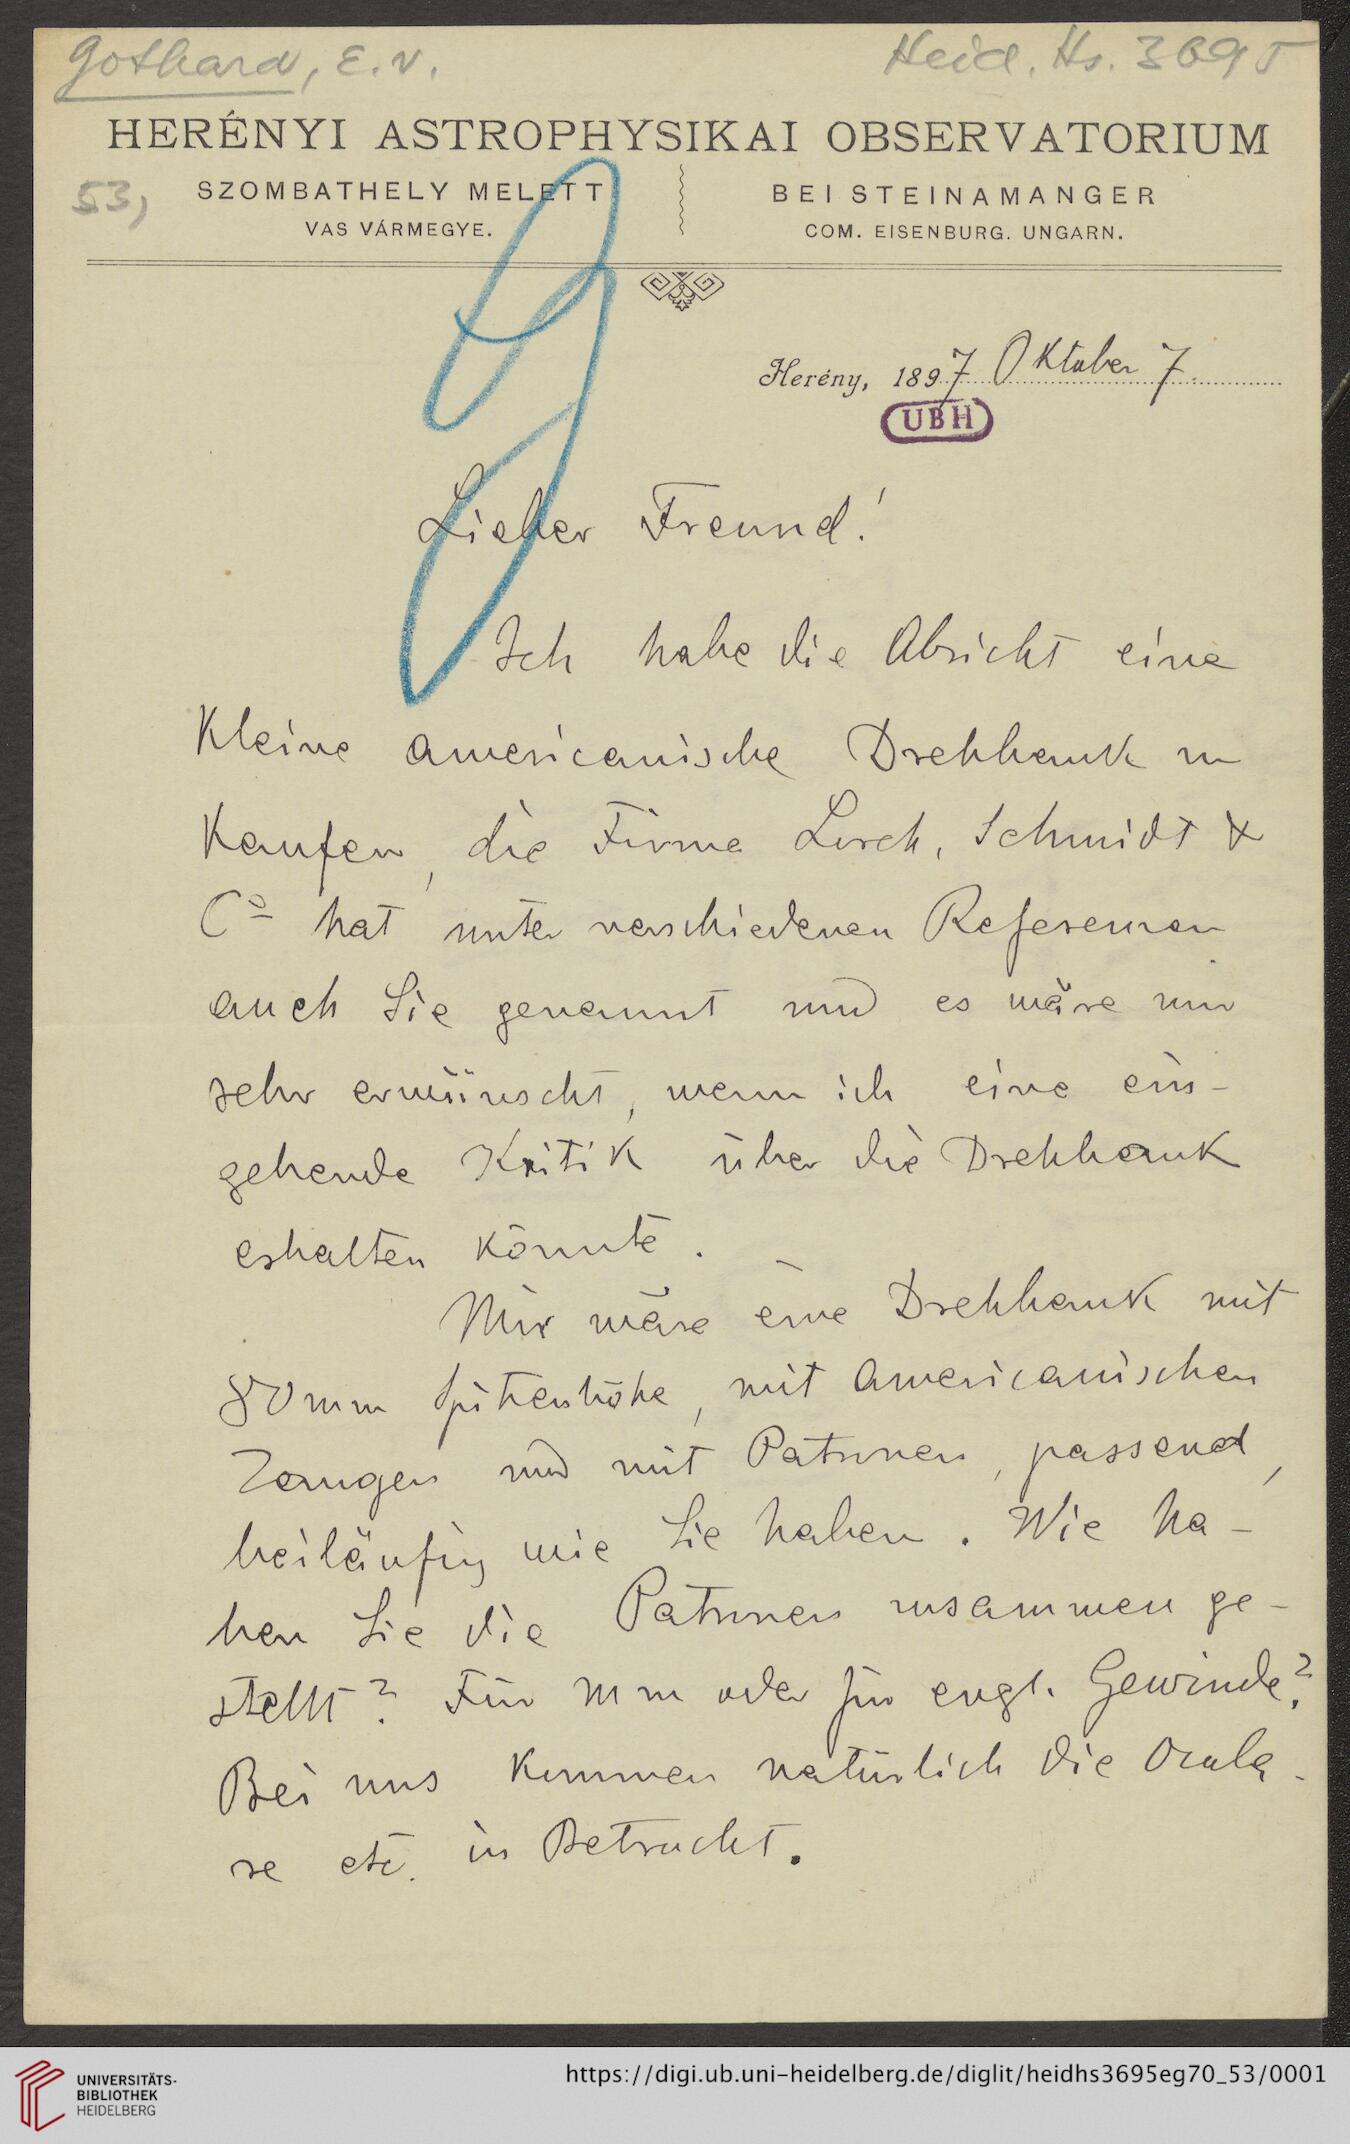 Gothard, E. v.
Heid. Hs. 3695
HERÉNYI ASTROPHYSIKAI OBSERVATORIUM
53,
SZOMBATHELY MELETT
VAS VÁRMEGYE.
BEI STEINAMANGER
COM. EISENBURG. UNGARN.
Herény, 1897 Oktober 7.
UBH
Lieber Freund!
Ich habe die Absicht eine
kleine americanische Drehbank zu
kaufen, die Firma Lorch, Schmidt &
Co hat unter verschiedenen Referenzen
auch Sie genannt und es wäre mir
sehr erwünscht, wenn ich eine ein-
gehende Kritik über die Drehbank
erhalten könnte.
Mir wäre eine Drehbank mit
80 mm Spitzenhöhe, mit americanischen
Zangen und mit Patronen, passend,
beiläufig wie Sie haben. Wie ha-
ben Sie die Patronen zusammen ge-
stellt? Für mm oder für engl. Gewinde?
Bei uns kommen natürlich die Ocula-
re etc. in Betracht.
UNIVERSITÄTS-
BIBLIOTHEK
HEIDELBERG
https://digi.ub.uni-heidelberg.de/diglit/heidhs3695eg70_53/0001